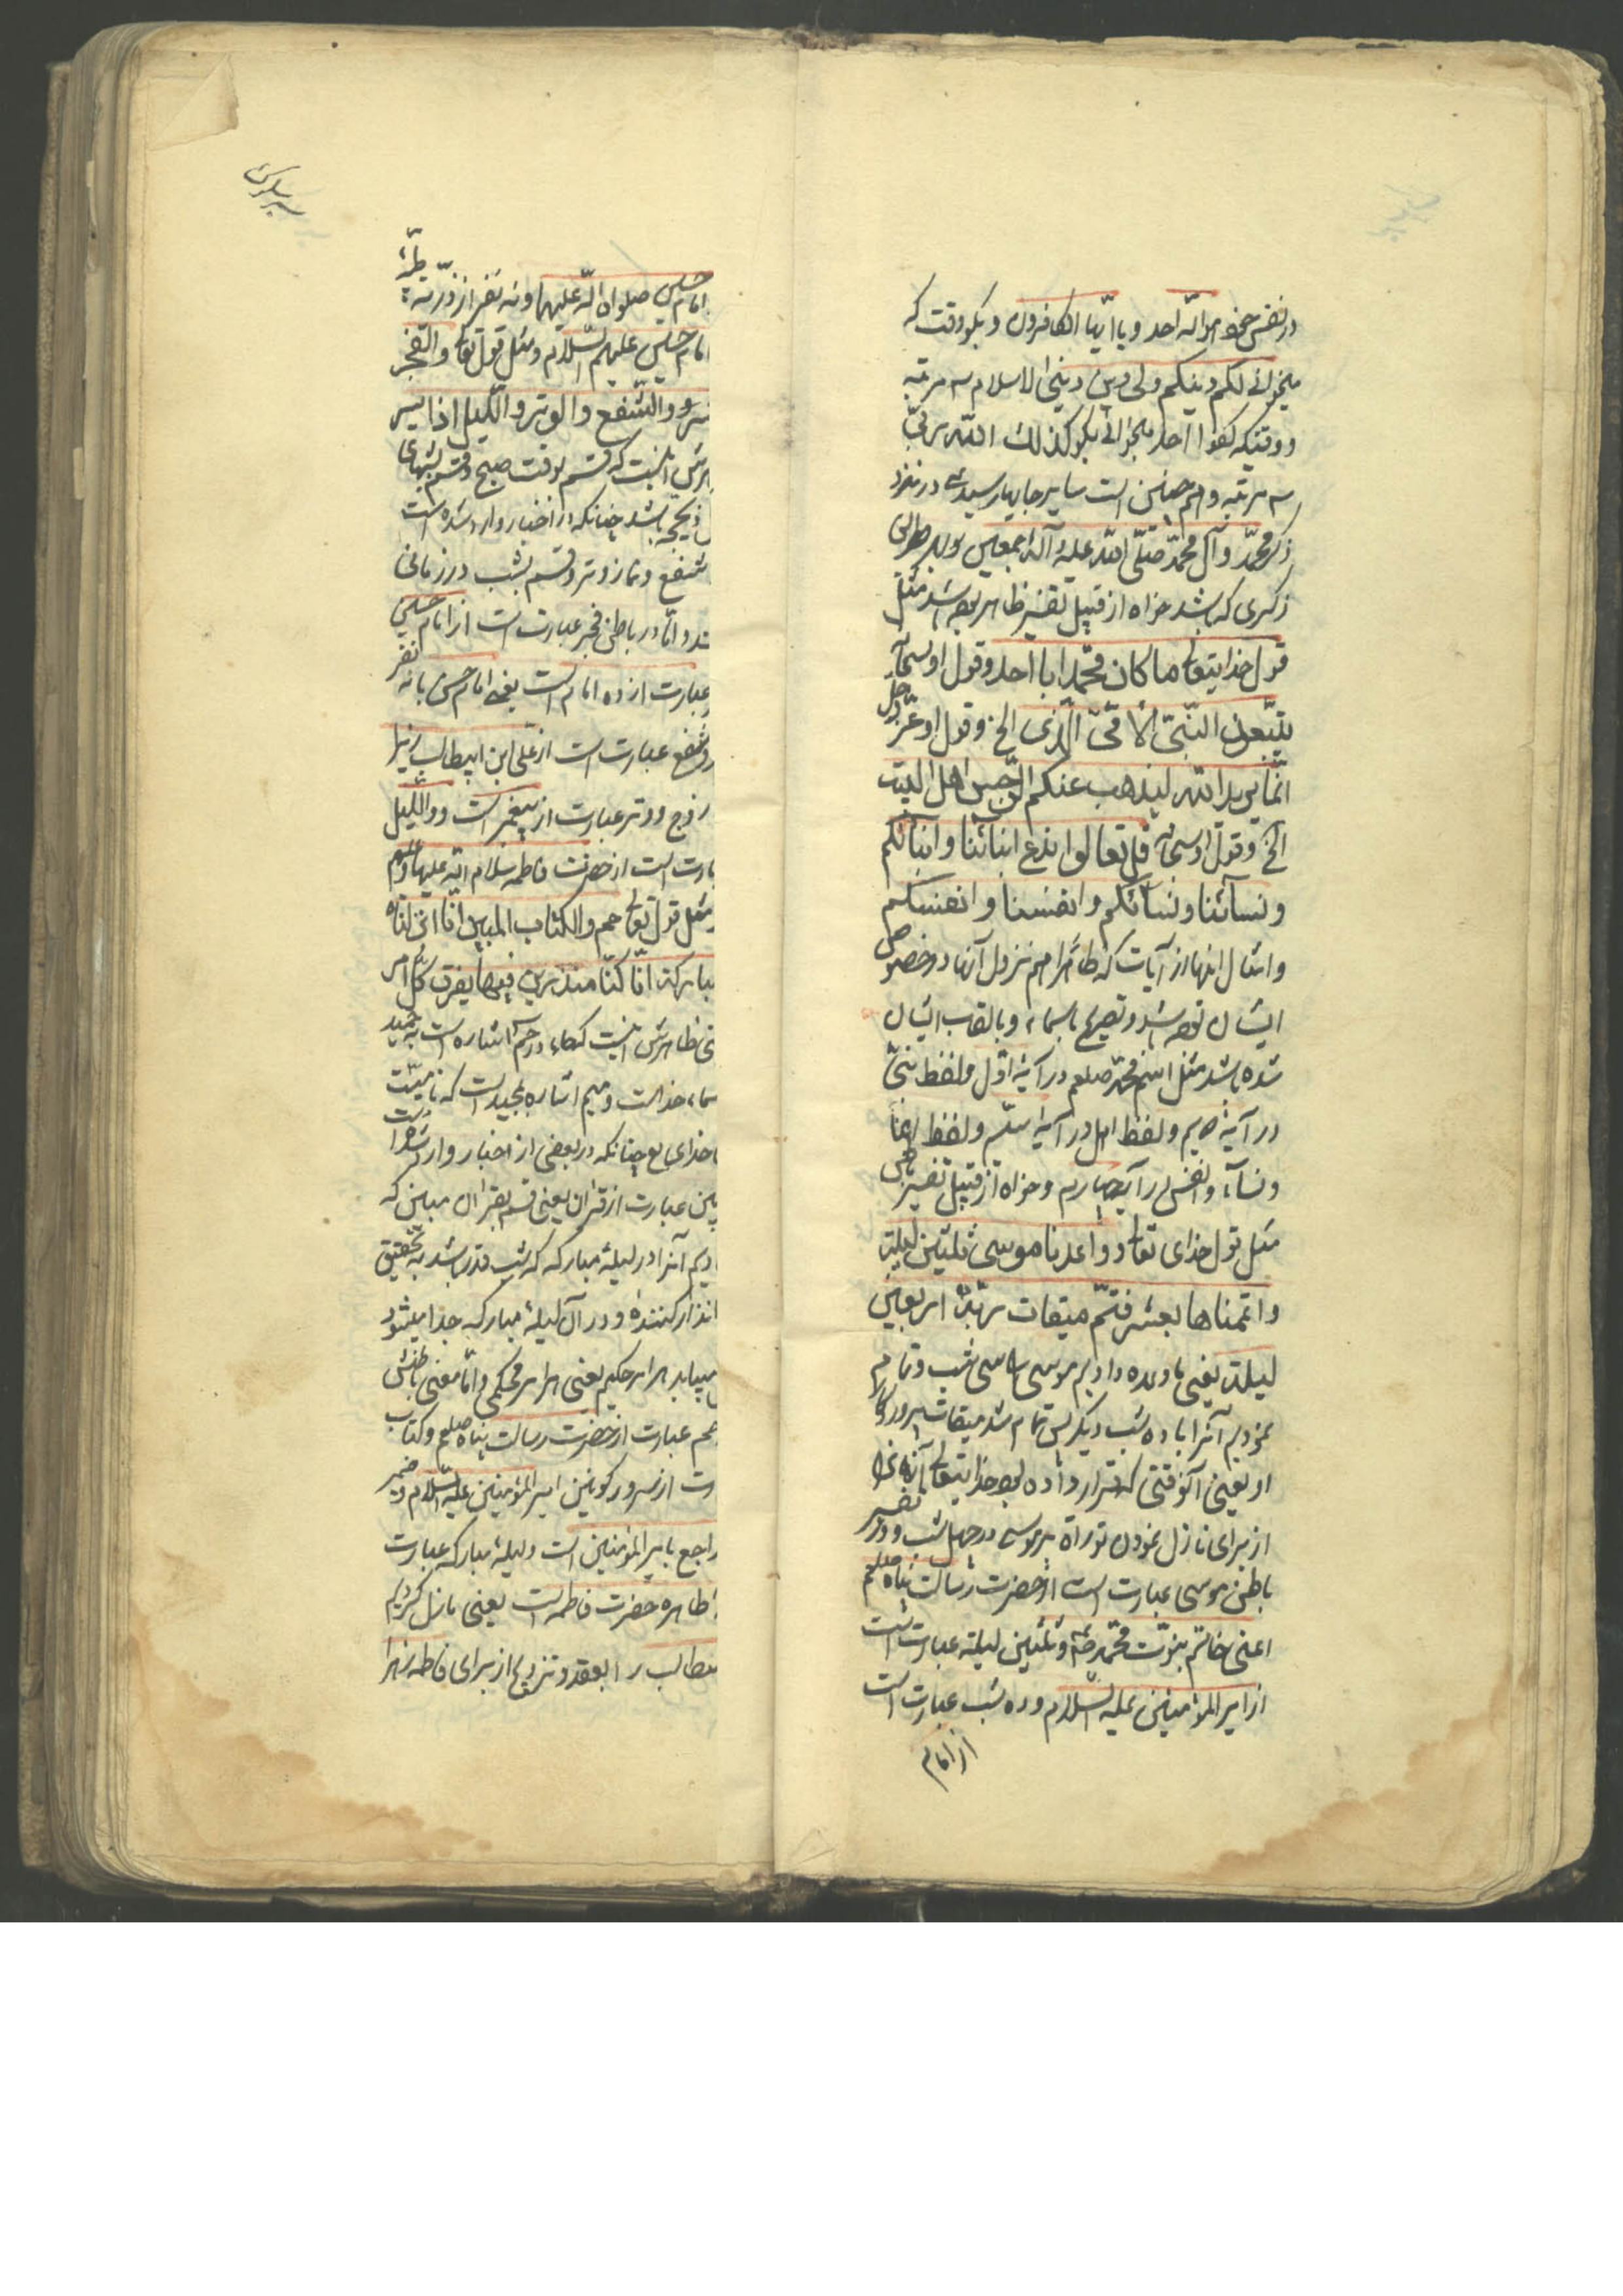 در نفس خود هو الله احد و یا ایها الکافرون و بگو وقت که
میخوانی لکم دینکم ولی دین دینی الاسلام سه مرتبه
و وقتیکه کفوا احد میخوانی بگو کذلک الله ربی
سه مرتبه و هم چنین است سایر جاها رسیدی در نزد
ذکر محمد و آل محمد صلی الله علیه و آله اجمعین بهر طریق
ذکری که باشد خواه از قبیل تفسیر ظاهر بوده باشد مثل
قول خدایتعالی ما کان محمد ابا احد و قول او سبحانه
یتبعون النبی الامی الذی الخ و قول او عز و جل
انما یرید الله لیذهب عنکم الرجس اهل البیت
الخ و قول او سبحانه قل تعالوا ندع ابنائنا و ابنائکم
و نسائنا و نسائکم و انفسنا و انفسکم
و امثال اینها از آیات که ظاهرا هم نزول آنها در خصوص
ایشان بوده باشد و تصریح باسماء و بالقاب ایشان
شده باشد مثل اسم محمد صلعم در آیهٔ اول و لفظ نبی
در آیهٔ دویم و لفظ اهل در آیهٔ سیم و لفظ ابنا
و نساء و انفس در آیه چهارم و خواه از قبیل تفسیر باطن
مثل قول خدای تعالی و واعدنا موسی ثلثین لیلة
و اتممناها بعشر فتم میقات ربه اربعین
لیلة یعنی ما وعده دادیم موسی را سی شب و تمام
نمودیم آنرا با ده شب دیگر پس تمام شد میقات پروردگار
او یعنی آنوقتی که قرار داده بود خدایتعالی آنرا
از برای نازل نمودن توراة بر موسی در چهل شب و در تفسیر
باطن موسی عبارت است از حضرت رسالت پناه صلعم
اعنی خاتم نبوت محمد ص و ثلثین لیلة عبارتست
از امیر المؤمنین علیه السلام و ده شب عبارت است
از امام
امام حسین صلوات الله علیهما و نه نفر از ذریه طیبه
امام حسین علیهم السلام و مثل قول تعالی و الفجر
و الشفع و الوتر و اللیل اذا یسر
اینست که قسم بوقت صبح و قسم بشبهای
ذیحجه باشد چنانکه در اخبار وارد شده است
شفع و نماز وتر و قسم بشب در زمانی
و اما در باطن فجر عبارت است از امام حسین
عبارت از ده امام است یعنی امام حسن با نه نفر
و شفع عبارت است از علی ابن ابیطالب
زوج و وتر عبارت از پیغمبر است و و اللیل
است از حضرت فاطمه سلام الله علیها
مثل قول تعالی حم و الکتاب المبین انا انزلناه
مبارکة انا کنا منذرین فیها یفرق کل امر
ظاهرش اینست که حاء در حم اشاره است به حمید
خداست و میم اشاره بمجید است که
خدای تع چنانکه در بعضی از اخبار وارد شده است
عبارت از قران یعنی قسم بقران مبین که
آنرا در لیلهٔ مبارکه که شب قدر باشد بتحقیق
انذار کننده و در آن لیلهٔ مبارکه جدا میشود
هر امر حکیم یعنی هر امر محکمی و اما معنی باطنش
حم عبارت از حضرت رسالت پناه صلعم و کتاب
از سرور کونین امیر المؤمنین علیه السلام و ضمیر
راجع بامیر المؤمنین است و لیلهٔ مبارکه عبارت
طاهره حضرت فاطمه است یعنی نازل کردیم
را بعقد و تزویج از برای فاطمه زهرا